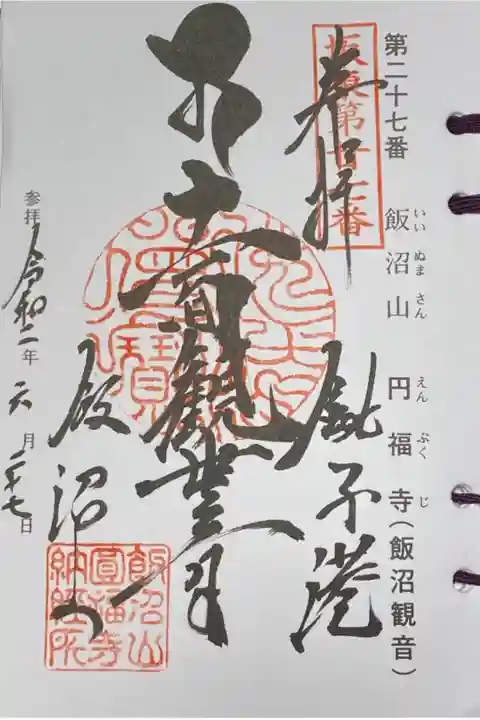 いい ぬま さん えん ぷく じ
第二十七番 飯沼山 円福寺(飯沼観音)
坂東第廿七番
奉拝 銚子港
十一面觀世音
飯沼山
参拝 令和二年 六月二十七日
飯沼山
圓福寺
納経所